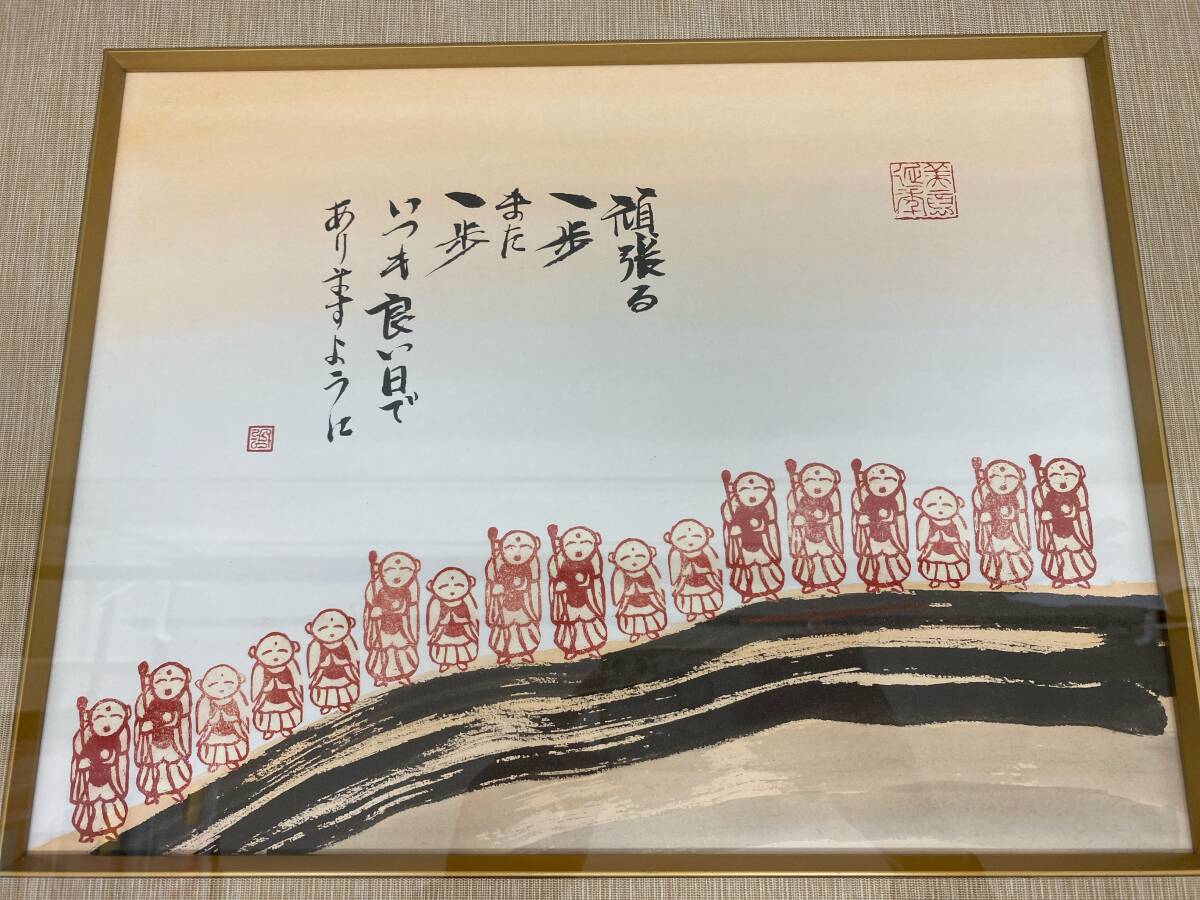 頑張る
一歩
また
一歩
いつも良い日で
ありますように